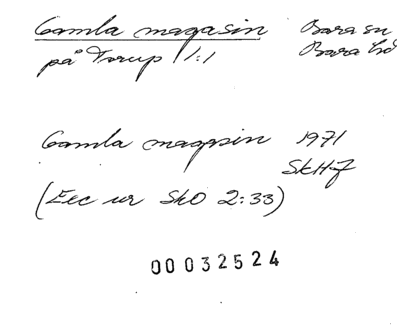 Gamla magasin Bara sn
på Torup 1:1 Bara hd
Gamla magasin 1971
SkHf
(Exc ur SkO 2:33)
00032524